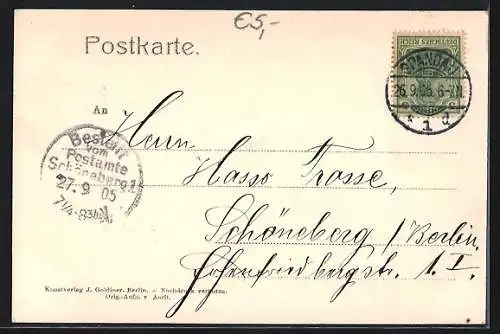 €5,-
Postkarte.
DEUTSCHES REICH
SPANDAU
26.9.05. 6-7N.
* 1 d
An
Bestellt
vom
Postamte
Schöneberg 1
27. 9 05
7¼-8¾V.
Herrn
Hasso Trosse,
Schöneberg / Berlin.
Hohenfriedbergstr. 1. I.
Kunstverlag J. Goldiner, Berlin. – Nachdruck verboten.
Orig.-Aufn. v